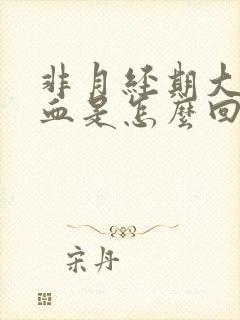 非月経期大
血是怎麼回
宋丹